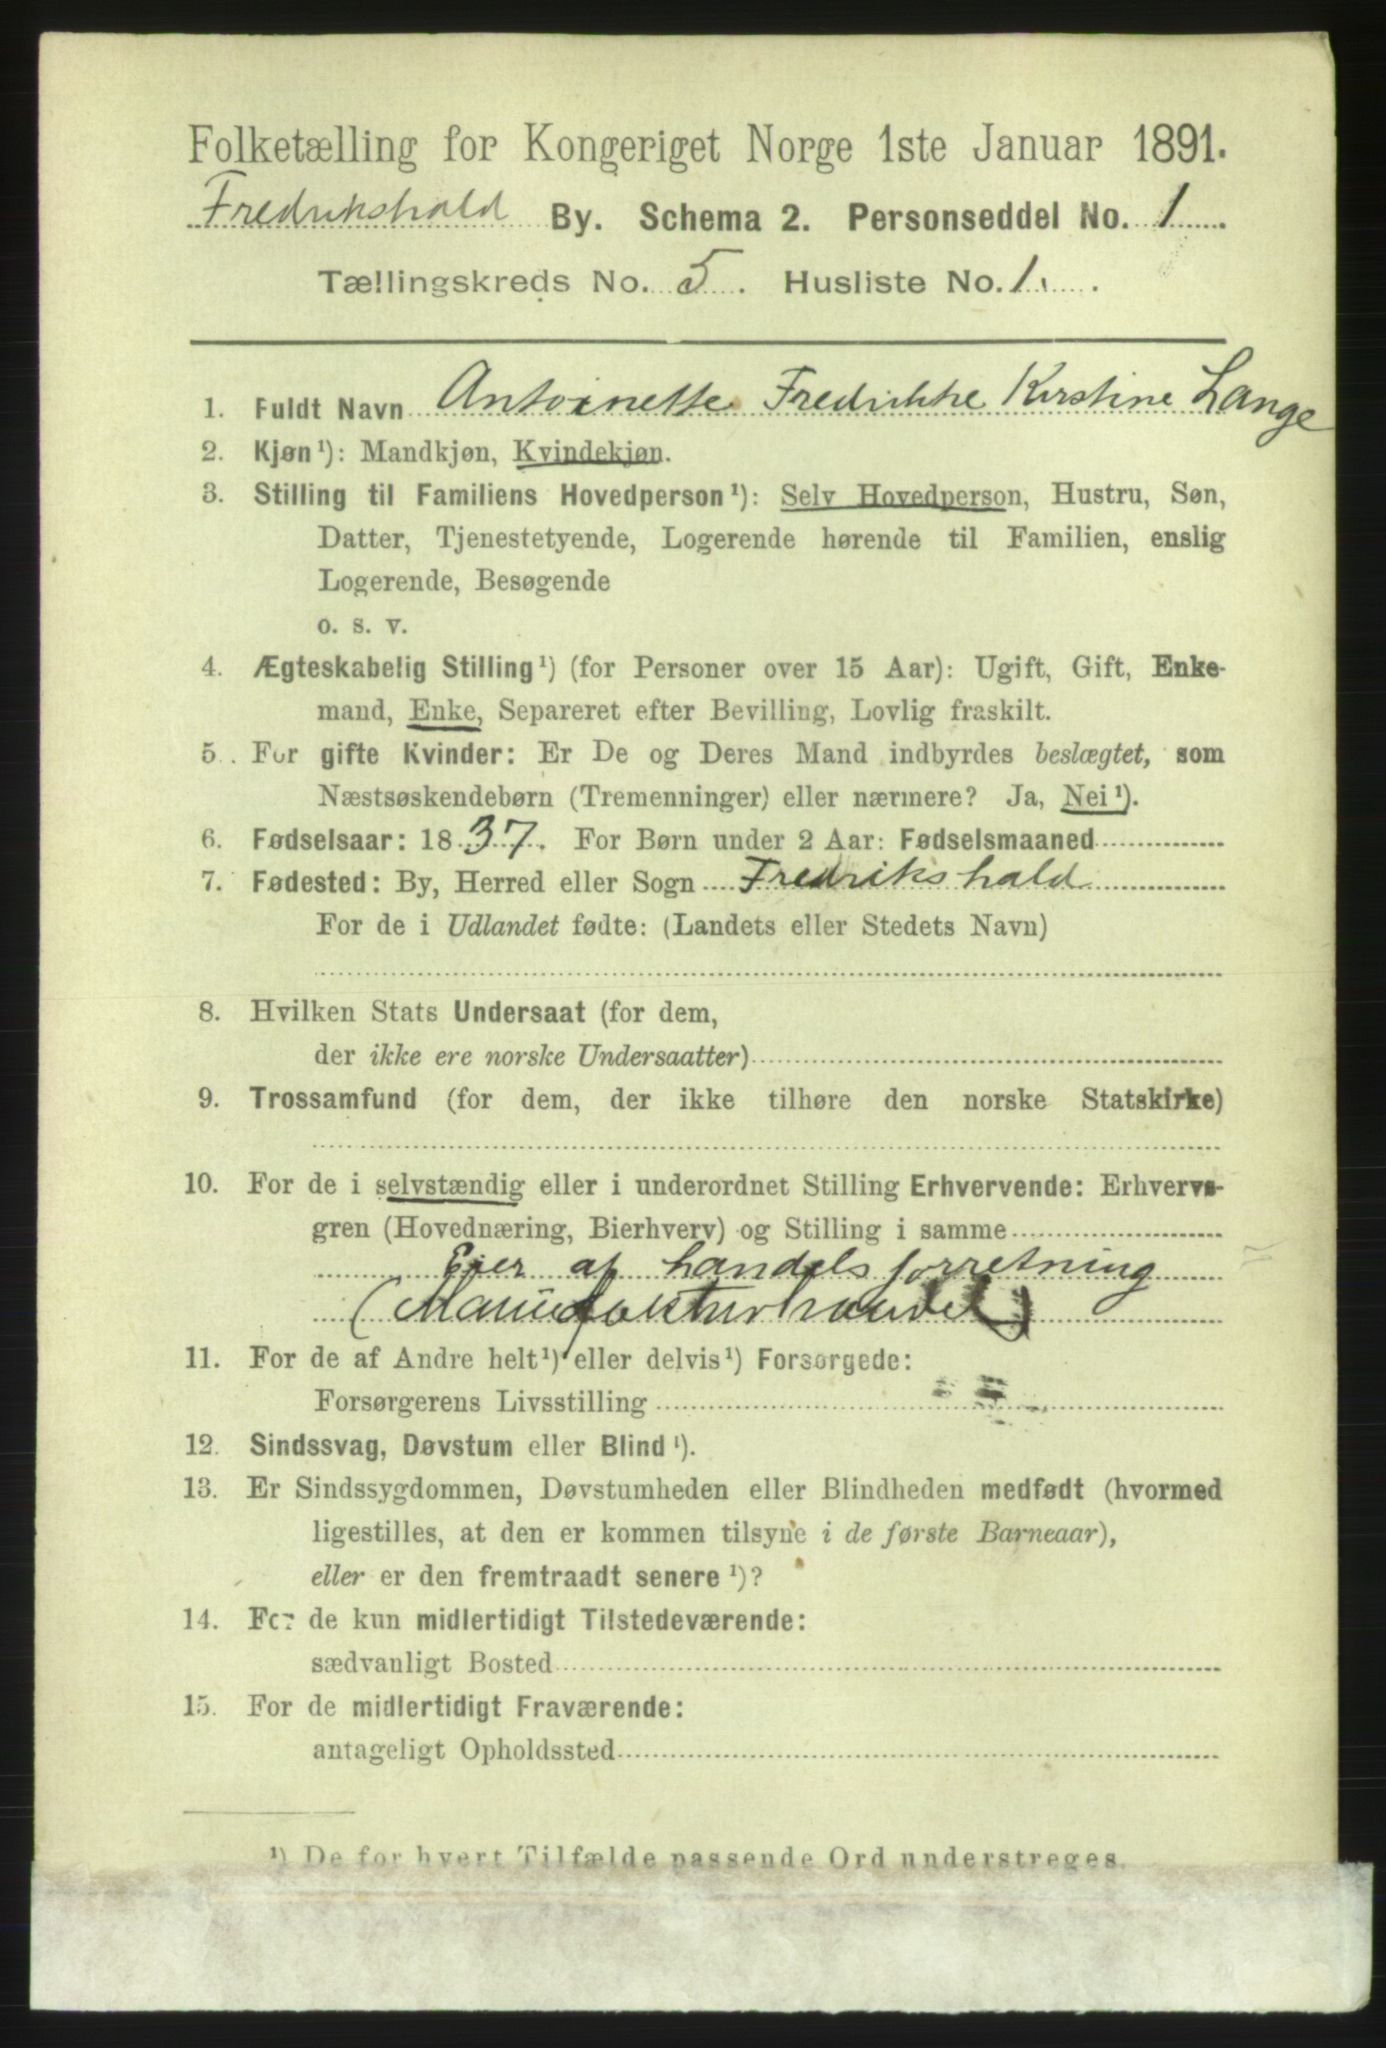 Folketælling for Kongeriget Norge 1ste Januar 1891.
Fredrikshald By. Schema 2. Personseddel No. 1
Tællingskreds No. 5. Husliste No. 1.
1. Fuldt Navn Antoinette Fredrikke Kirstine Lange
2. Kjøn¹): Mandkjøn, Kvindekjøn.
3. Stilling til Familiens Hovedperson¹): Selv Hovedperson, Hustru, Søn,
Datter, Tjenestetyende, Logerende hørende til Familien, enslig
Logerende, Besøgende
o. s. v.
4. Ægteskabelig Stilling¹) (for Personer over 15 Aar): Ugift, Gift, Enke-
mand, Enke, Separeret efter Bevilling, Lovlig fraskilt.
5. For gifte Kvinder: Er De og Deres Mand indbyrdes beslægtet, som
Næstsøskendebørn (Tremenninger) eller nærmere? Ja, Nei¹).
6. Fødselsaar: 1837. For Børn under 2 Aar: Fødselsmaaned
7. Fødested: By, Herred eller Sogn Fredrikshald
For de i Udlandet fødte: (Landets eller Stedets Navn)
8. Hvilken Stats Undersaat (for dem,
der ikke ere norske Undersaatter)
9. Trossamfund (for dem, der ikke tilhøre den norske Statskirke)
10. For de i selvstændig eller i underordnet Stilling Erhvervende: Erhvervs-
gren (Hovednæring, Bierhverv) og Stilling i samme
Eier af handelsforretning
(Manufakturhandel)
11. For de af Andre helt¹) eller delvis¹) Forsørgede:
Forsørgerens Livsstilling
12. Sindssvag, Døvstum eller Blind¹).
13. Er Sindssygdommen, Døvstumheden eller Blindheden medfødt (hvormed
ligestilles, at den er kommen tilsyne i de første Barneaar),
eller er den fremtraadt senere¹)?
14. For de kun midlertidigt Tilstedeværende:
sædvanligt Bosted
15. For de midlertidigt Fraværende:
antageligt Opholdssted
¹) De for hvert Tilfælde passende Ord understreges.